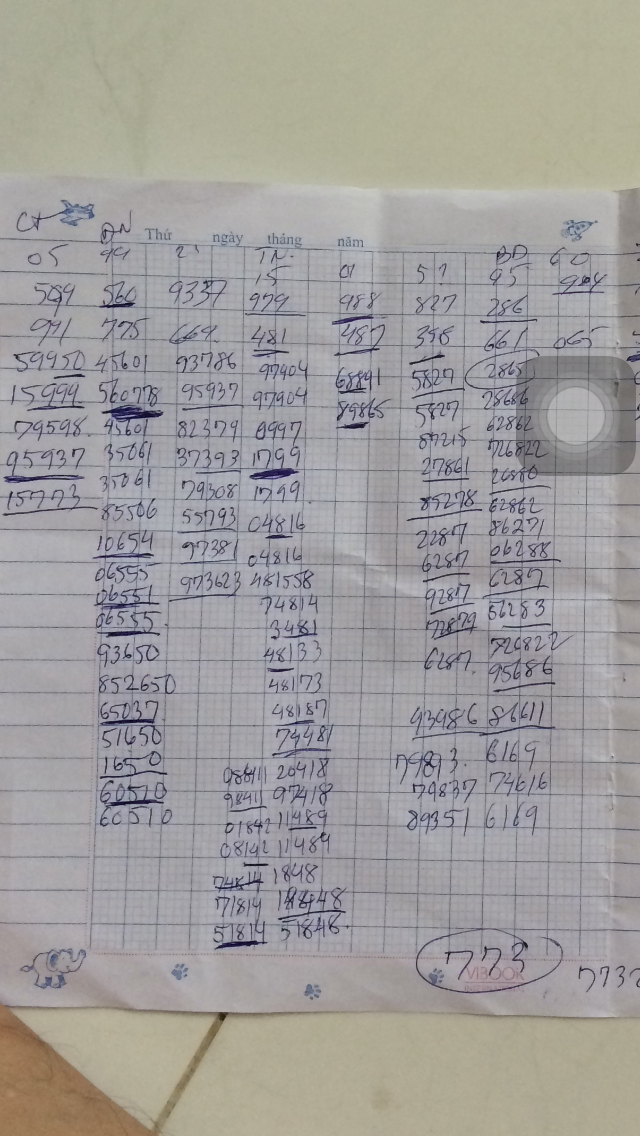 CT ĐN Thứ ngày tháng năm
05 99 21 TN. BD 60
15 01 5? 95 904
509 560 9337 979 988 827 286
991 775 669 481 487 398 661 065
59950 45601 93786 97404 68841 5827 2865
15999 560778 95937 97904 89865 5827 28686
79598 45601 82379 0997 87215 62862
95937 35061 37393 1799 27861 726822
15773 35061 79308 1799 85278 26880
85506 55793 04816 2287 62862
10654 97381 04816 6287 86271
06555 973623 481558 9287 06288
06551 74814 72879 6287
06555 3481 6287 56283
93650 48133 726822
852650 48173 95686
65037 48187 93986 86611
51650 74481
1650 98411 20418 79893 6169
60510 9841 97418 79837 74616
60510 01842 11489 89351 6169
08142 11489
74814 1848
71814 18448
51814 51848
773
VIBOOK
7732